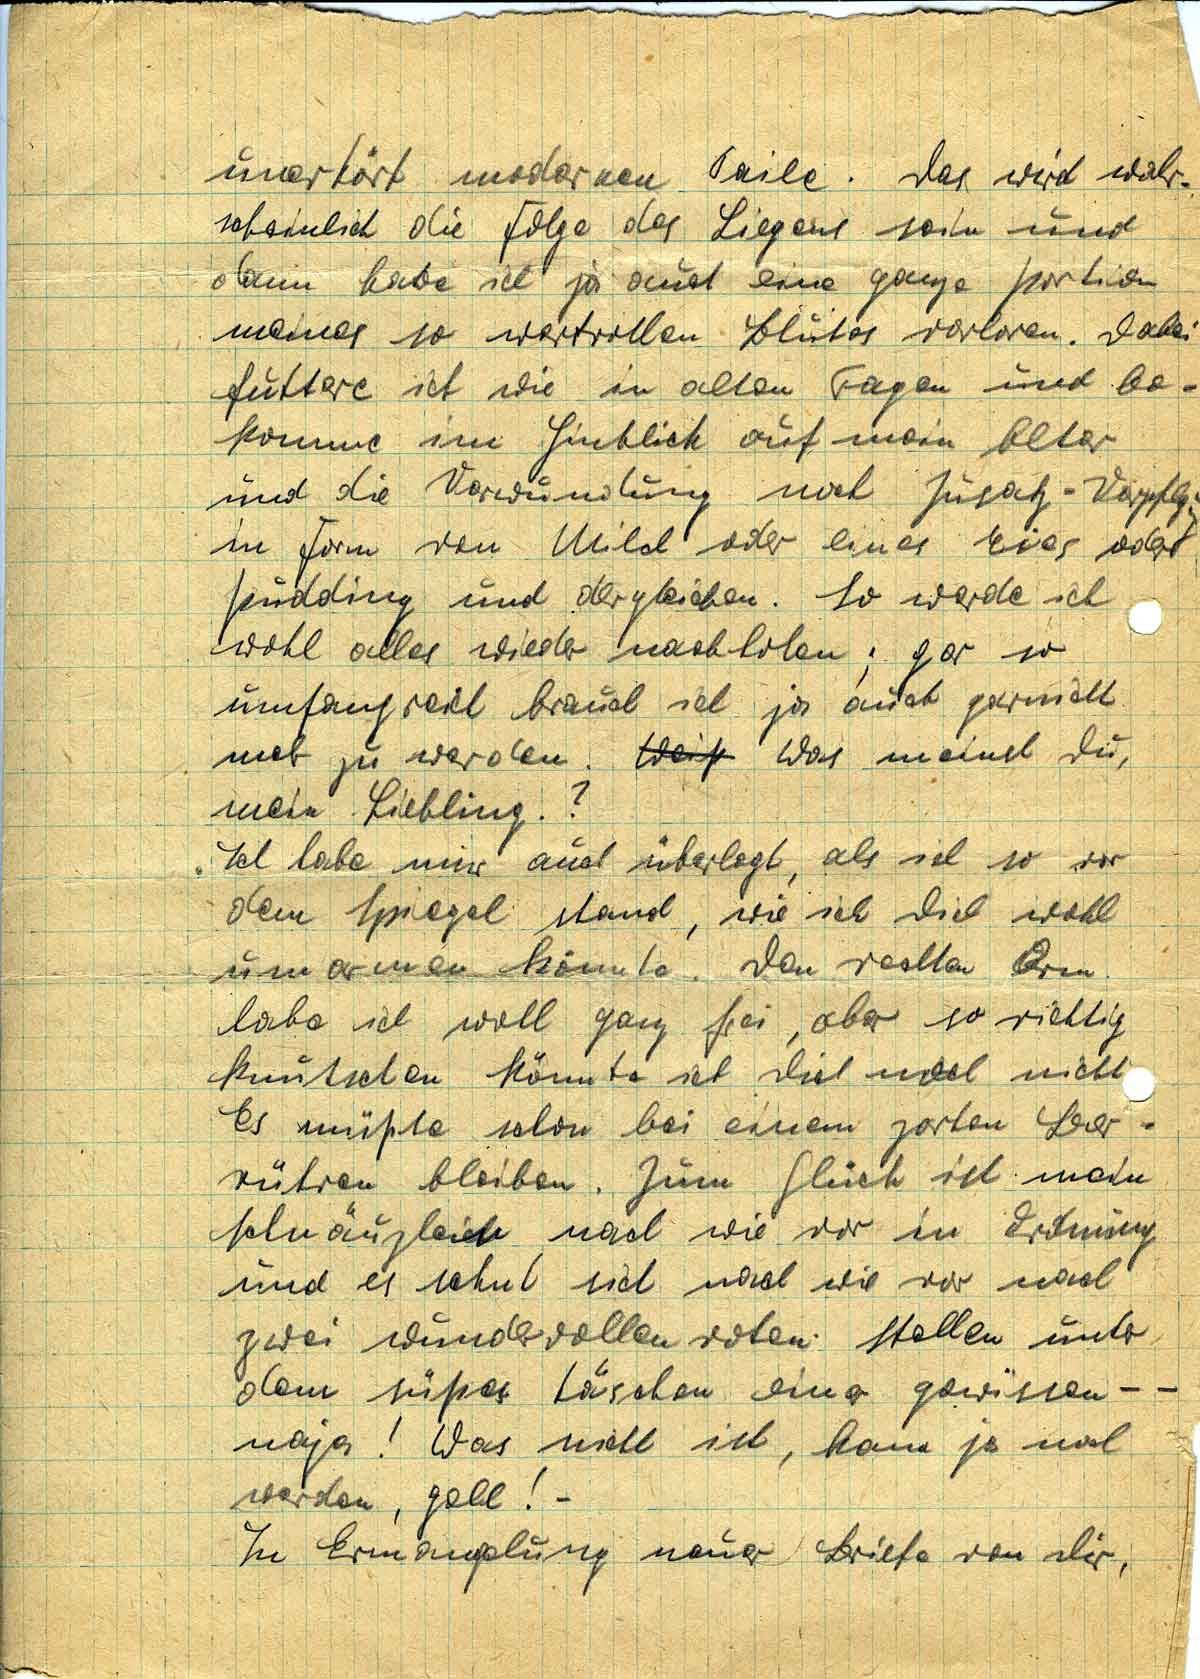 unerhört modernen Taile. Das wird wahr-
scheinlich die Folge des Liegens sein und
dann habe ich ja auch eine ganze Portion
meines so wertvollen Blutes verloren. Dabei
futtere ich wie in alten Tagen und be-
komme im Hinblick auf mein Alter
und die Verwundung noch Zusatz-Verpflg.
in Form von Milch oder eines Eies oder
Pudding und dergleichen. So werde ich
wohl alles wieder nachholen; gar so
umfangreich brauch ich ja auch garnicht
mehr zu werden. Weiß Was meinst Du,
mein Liebling.?
Ich habe mir auch überlegt, als ich so vor
dem Spiegel stand, wie ich Dich wohl
umarmen könnte. Den rechten Arm
habe ich wohl ganz frei, aber so richtig
knutschen könnte ich Dich noch nicht
Es müßte schon bei einem zarten Ber-
rühren bleiben. Zum Glück ist mein
Schnäuzlein nach wie vor in Ordnung
und es sehnt sich nach wie vor nach
zwei wundervollen roten Stellen unter
dem süßes Näschen einer gewissen--
naja! Was nicht ist, kann ja noch
werden, gell!-
In Ermangelung neuer Briefe von Dir,